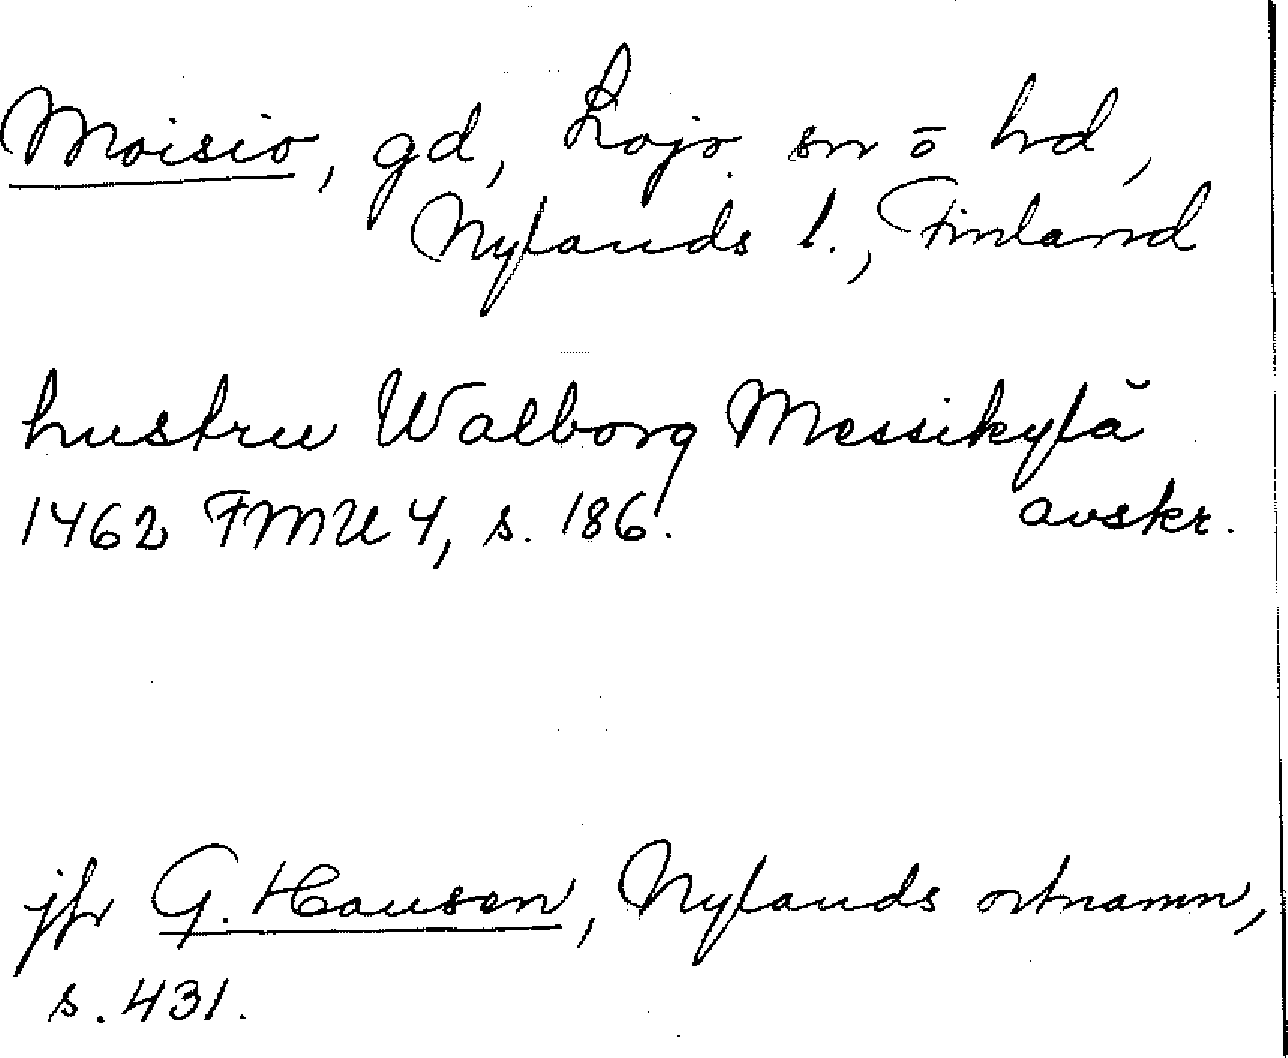 Moisio, gd, Lojo sn o hd,
Nylands l., Finland
hustru Walborg Messikylä
1462 FMU 4, s. 186. avskr.
jfr G. Hausen, Nylands ortnamn,
s. 431.